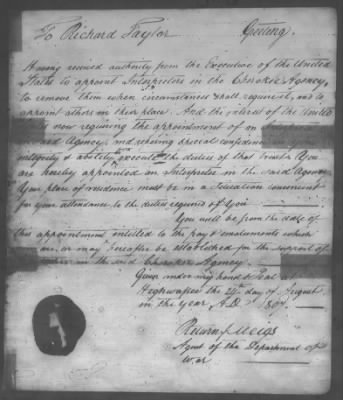 To Richard Taylor Greeting.
Having received authority from the Executive of the United
States to appoint Interpreters in the Cherokee Agency,
to remove them when circumstances shall require it, and to
appoint others in their place. And the interest of the United
States now requiring the appointment of an Interpreter
said Agency, and reposing special confidence in your
integrity & ability execute the duties of that trust. You
are hereby appointed an Interpreter in the said Agency
Your place of residence must be in a Situation convenient
for your attendance to the duties required of You
You will be from the date of
this appointment entitled to the pay & emoluments which
are, or may hereafter be established for the support of
in the said Cherokee Agency.
Given under my hand & Seal at
Highwassee the day of August
in the year A.D.
Return J. Meigs
Agent of the Department of
War